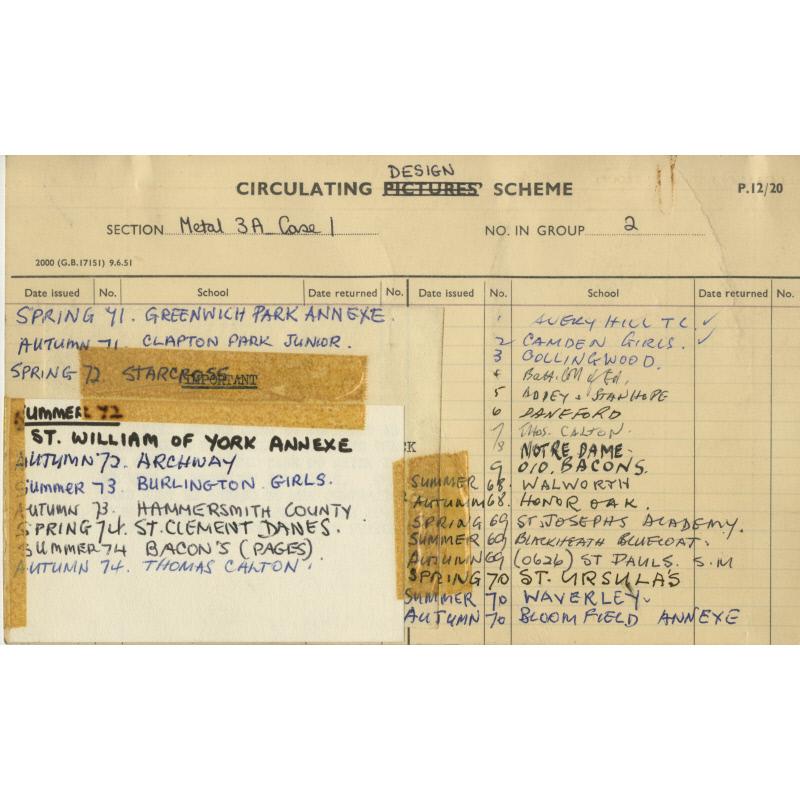 DESIGN
CIRCULATING PICTURES' SCHEME
P.12/20
SECTION Metal 3A Case 1
NO. IN GROUP 2
2000 (G.B.17151) 9.6.51
Date issued No. School Date returned No. Date issued No. School Date returned No.
SPRING 71. GREENWICH PARK ANNEXE.
AUTUMN 71. CLAPTON PARK JUNIOR.
SPRING 72 STARCROSS
IMPORTANT
SUMMER 72
ST. WILLIAM OF YORK ANNEXE
AUTUMN 72. ARCHWAY
SUMMER 73. BURLINGTON GIRLS.
AUTUMN 73. HAMMERSMITH COUNTY
SPRING 74. ST. CLEMENT DANES.
SUMMER 74 BACON'S (PAGES)
AUTUMN 74. THOMAS CALTON.
CK
1 AVERY HILL T C. ✓
2 CAMDEN GIRLS. ✓
3 COLLINGWOOD.
4 Batt. Coll of Ed.
5 ABBEY & STANHOPE
6 DANEFORD
7 THOS. CALTON.
8 NOTRE DAME.
9 O/D. BACONS.
SUMMER 68. WALWORTH
AUTUMN 68. HONOR OAK.
SPRING 69 ST. JOSEPHS ACADEMY.
SUMMER 69 BLACKHEATH BLUECOAT.
AUTUMN 69 (0626) ST PAULS. S.M
SPRING 70 ST. URSULA'S
SUMMER 70 WAVERLEY.
AUTUMN 70 BLOOMFIELD ANNEXE